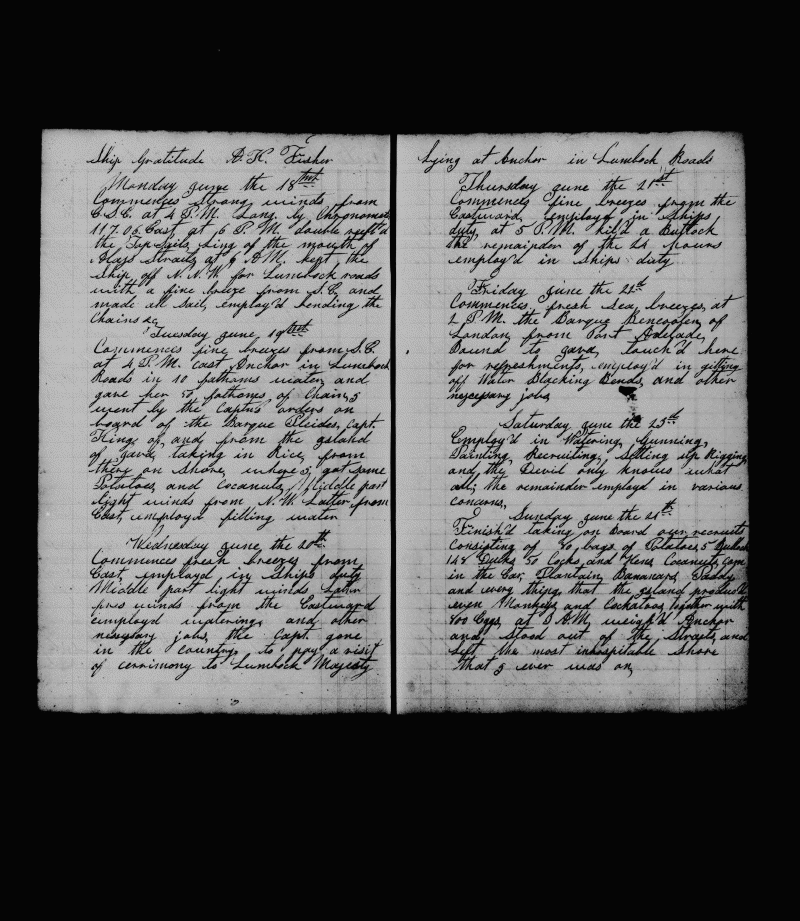 Ship Gratitude A. H. Fisher
Monday June the 18th
Commences strong winds from
E.S.E. at 4 P.M. Long. by Chronometer
117.06 East, at 6 P.M. double reef'd
the Top-Sails, being of the mouth of
Allass Straits, at 9 A.M. kept the
Ship off N.N.W for Lumbock roads
with a fine breeze from S.E. and
made all Sail, employ'd bending the
Chains &c
Tuesday June 19th
Commences fine breezes from S.E.
at 4 P.M. cast Anchor in Lumbock
Roads in 10 fathoms water, and
gave her 50 fathoms of Chain, I
went by the Captns orders on
board of the Barque Pleides, Capt.
King, of, and from the Island
of Java, taking in Rice, from
there on Shore, where I got some
Potatoes, and Cocanuts, Middle part
light winds from N.W. Latter from
East, employ'd filling water
Wednesday June the 20th
Commences fresh breezes from
East, employed in Ships duty
Middle part light winds Latter
pres winds from the Eastward
employ'd watering, and other
nisessary jobs, the Capt. gone
in the country to pay a visit
of cerrimony to Lumbock Majesty
Lying at Anchor in Lumbock Roads
Thursday June the 21st
Commences fine breezes from the
Eastward, employ'd in Ships
duty, at 5 P.M. kill'd a Bullock
the remainder of the 24 hours
employ'd in Ships duty
Friday June the 22d
Commences fresh Sea breezes, at
2 P.M. the Barque Bencoolen of
London, from Port Adelaide
Bound to Java, touch'd here
for refreshments, employ'd in getting
off Water Blacking Bends, and other
necessary jobs
Saturday June the 23rd
Employ'd in Watering, Gunning,
Painting, Recruiting, Setting up Rigging
and the Devil only knows what
all, the remainder employd in various
concerns,
Sunday June the 24th
Finish'd taking on Board our recruits
Consisting of 80 bags of Potatoes, 5 Bullocks
148 Ducks 50 Cocks and Hens, Cocanuts, Corn
in the Ear, Plantain, Bananars, Paddy
and every thing that the Island produc'd
even Monkeys and Cockatoos, together with
400 Eggs, at 8 A.M. weigh'd Anchor
and stood out of the Straits, and
left the most inhospitable Shore
that I ever was on,